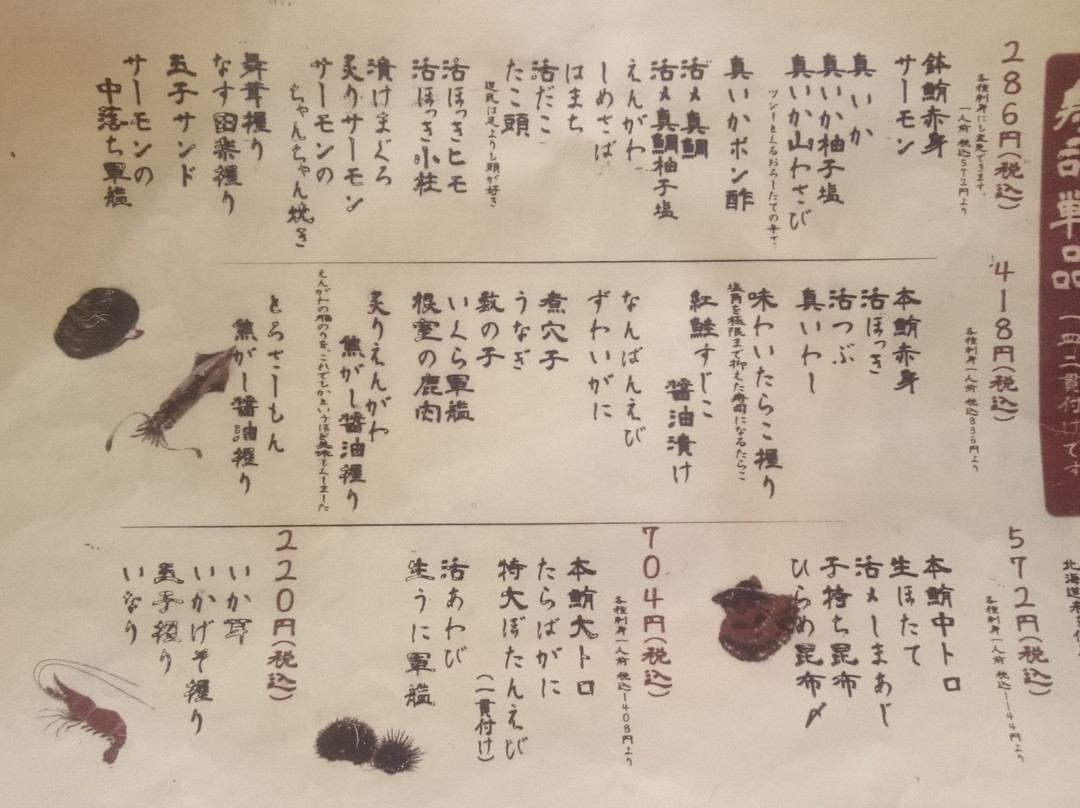 単品 一皿二貫付けです
286円(税込)
各種刺身にも変更できます。
一人前 税込572円より
鉢鮪赤身
サーモン
真いか
真いか柚子塩
真いか山わさび
ツンーとくるおろしたての辛さ
真いかポン酢
活〆真鯛
活〆真鯛柚子塩
えんがわ
しめさば
はまち
活だこ
たこ頭
道民は足よりも頭が好き
活ほっきヒモ
活ほっき小柱
漬けまぐろ
炙りサーモン
サーモンの
ちゃんちゃん焼き
舞茸握り
なす田楽握り
玉子サンド
サーモンの
中落ち軍艦
418円(税込)
各種刺身一人前 税込836円より
本鮪赤身
活ほっき
活つぶ
真いわし
味わいたらこ握り
塩角を極限まで抑えた寿司になるたらこ
紅鮭すじこ
醤油漬け
なんばんえび
ずわいがに
煮穴子
うなぎ
数の子
いくら軍艦
根室の鹿肉
炙りえんがわ
焦がし醤油握り
えんがわの脂のりを、これでもかというほど
とろさーもん
焦がし醤油握り
572円(税込)
各種刺身一人前 税込1144円より
本鮪中トロ
生ほたて
活〆しまあじ
子持ち昆布
ひらめ昆布〆
704円(税込)
各種刺身一人前 税込1408円より
本鮪大トロ
たらばがに
特大ぼたんえび
(一貫付け)
活あわび
生うに軍艦
220円(税込)
いか耳
いかげそ握り
玉子握り
いなり
北海道